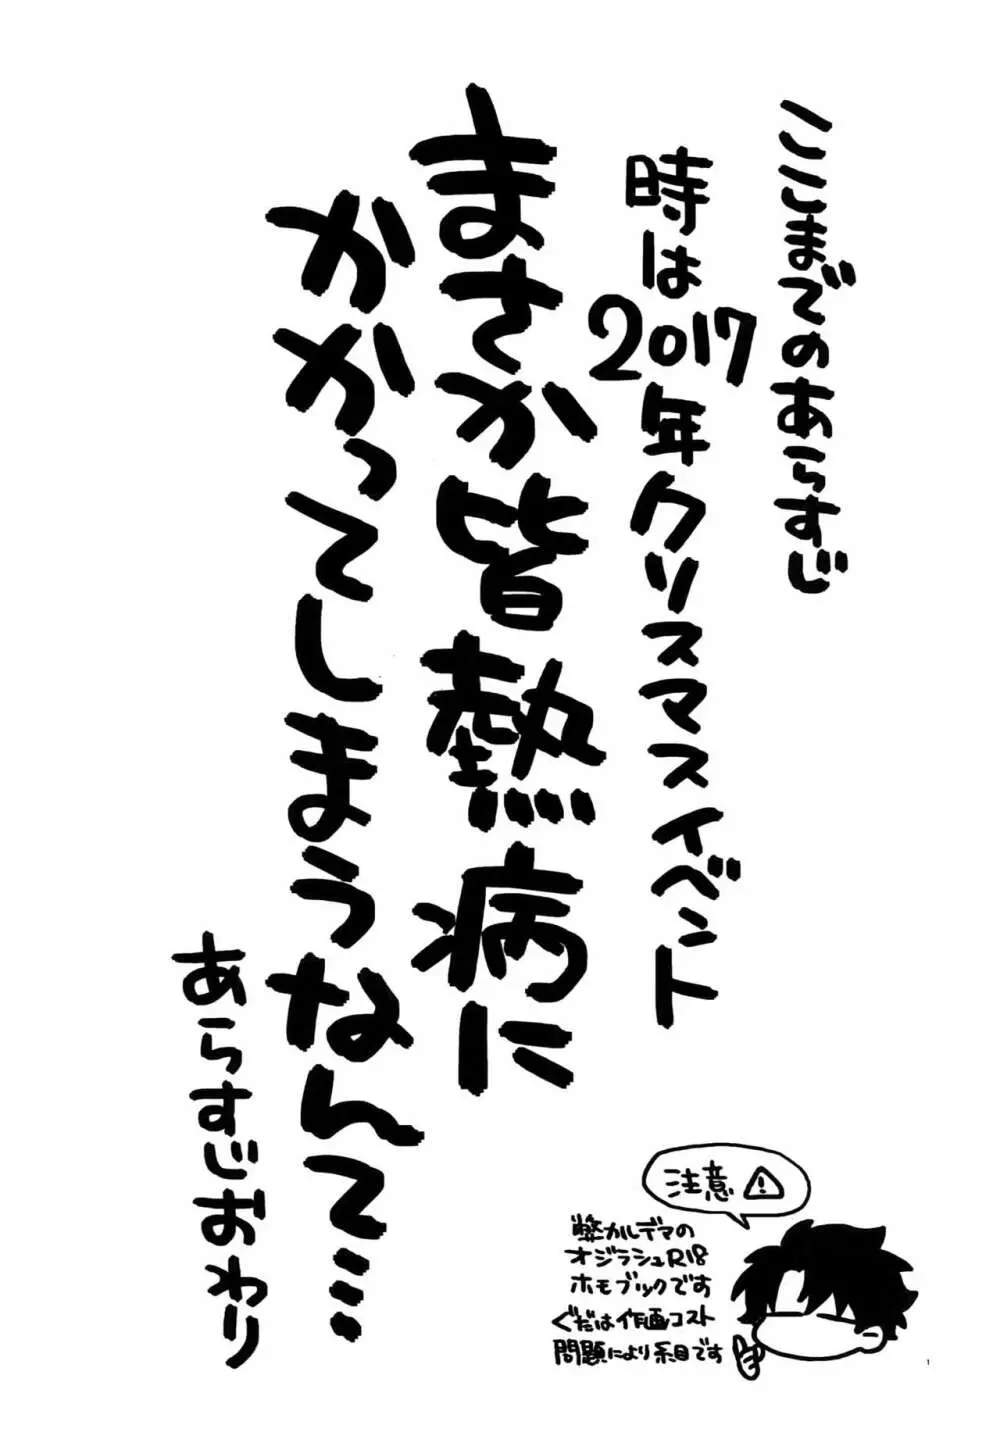 ここまでのあらすじ
時は2017年クリスマスイベント
まさか皆熱病に
かかってしまうなんて…
あらすじおわり
注意
弊カルデアの
オジラシュR18
ホモブックです
ぐだは作画コスト
問題により糸目です
1